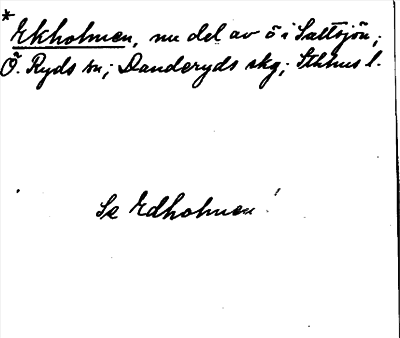 *Ekholmen, nu del av ö i Saltsjön;
Ö. Ryds sn; Danderyds skg; Sthlms l.
Se Edholmen!